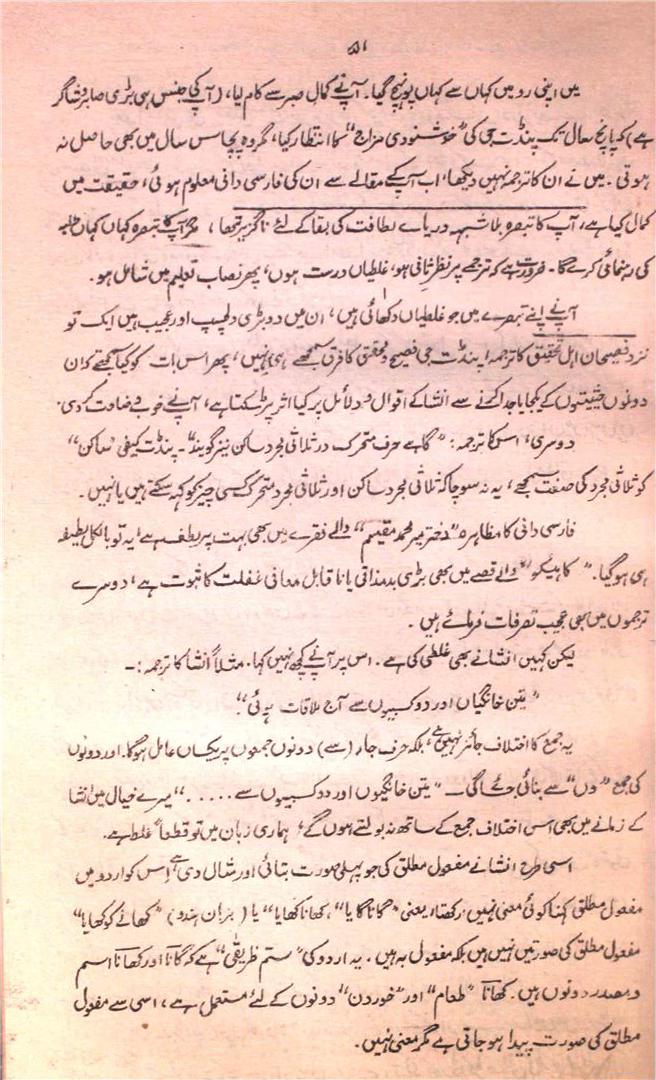 ۵۱
میں اپنی رو میں کہاں سے کہاں پہونچ گیا۔ آپ نے کمال صبر سے کام لیا، (آپ کی جنس ہی بڑی صابر و شاکر
ہے) کہ پانچ سال تک پنڈت جی کی "خوشنودی مزاج" کا انتظار کیا، مگر وہ پچاس سال میں بھی حاصل نہ
ہوتی۔ میں نے ان کا ترجمہ نہیں دیکھا، اب آپ کے مقالے سے ان کی فارسی دانی معلوم ہوئی، حقیقت میں
کمال کیا ہے، آپ کا تبصرہ بلا شبہہ دریائے لطافت کی بقا کے لئے ناگزیر تھا، مگر آپ کا تبصرہ کہاں کہاں طلبہ
کی رہنمائی کرے گا۔ ضرورت ہے کہ ترجمے پر نظر ثانی ہو، غلطیاں درست ہوں، پھر نصاب تعلیم میں شامل ہو۔
آپ نے اپنے تبصرے میں جو غلطیاں دکھائی ہیں، ان میں دو بڑی دلچسپ اور عجیب ہیں ایک تو
نزد فصیحان اہل تحقیق کا ترجمہ! پنڈت جی فصیح و محقق کا فرق سمجھے ہی نہیں، پھر اس بات کو کیا سمجھتے کہ ان
دونوں حیثیتوں کے یکجا یا جدا کرنے سے انشا کے اقوال و دلائل پر کیا اثر پڑ سکتا ہے، آپ نے خوب وضاحت کر دی۔
دوسری، اس کا ترجمہ: "گاہے حرف متحرک در ثلاثی مجرد ساکن نیز گویند"۔ پنڈت کیفی "ساکن"
کو ثلاثی مجرد کی صفت سمجھے، یہ نہ سوچا کہ ثلاثی مجرد ساکن اور ثلاثی مجرد متحرک کسی چیز کو کہہ سکتے ہیں یا نہیں۔
فارسی دانی کا مظاہرہ "دختر میر محمد مقیم" والے فقرے میں بھی بہت پر لطف ہے، یہ تو بالکل لطیفہ
ہی ہو گیا۔ "کاہیکو" والے قصے میں بھی بڑی بدمذاقی یا ناقابل معافی غفلت کا ثبوت ہے، دوسرے
ترجموں میں بھی عجیب تصرفات فرمائے ہیں۔
لیکن کہیں انشا نے بھی غلطی کی ہے۔ اس پر آپ نے کچھ نہیں کہا۔ مثلاً انشا کا ترجمہ:۔
"تین خانگیاں اور دو کسبیوں سے آج ملاقات ہوئی"۔
یہ جمع کا اختلاف جائز نہیں ہے، بلکہ حرف جار (سے) دونوں جمعوں پر یکساں عامل ہوگا۔ اور دونوں
کی جمع "وں" سے بنائی جائے گی۔ "تین خانگیوں اور دو کسبیوں سے ....." میرے خیال میں انشا
کے زمانے میں بھی اس اختلاف جمع کے ساتھ نہ بولتے ہوں گے، ہماری زبان میں تو قطعاً غلط ہے۔
اسی طرح انشا نے مفعول مطلق کی جو پہلی صورت بتائی اور مثال دی ہے اس کو اردو میں
مفعول مطلق کہنا کوئی معنی نہیں رکھتا، یعنی "گانا گایا"، "کھانا کھایا" یا (بزبان ہندو) "کھانے کو کھایا"
مفعول مطلق کی صورتیں نہیں ہیں بلکہ مفعول بہ ہیں۔ یہ اردو کی "ستم ظریفی" ہے کہ گانا اور کھانا اسم
و مصدر دونوں ہیں۔ کھانا "طعام" اور "خوردن" دونوں کے لئے مستعمل ہے، اسی سے مفعول
مطلق کی صورت پیدا ہو جاتی ہے مگر معنی نہیں۔